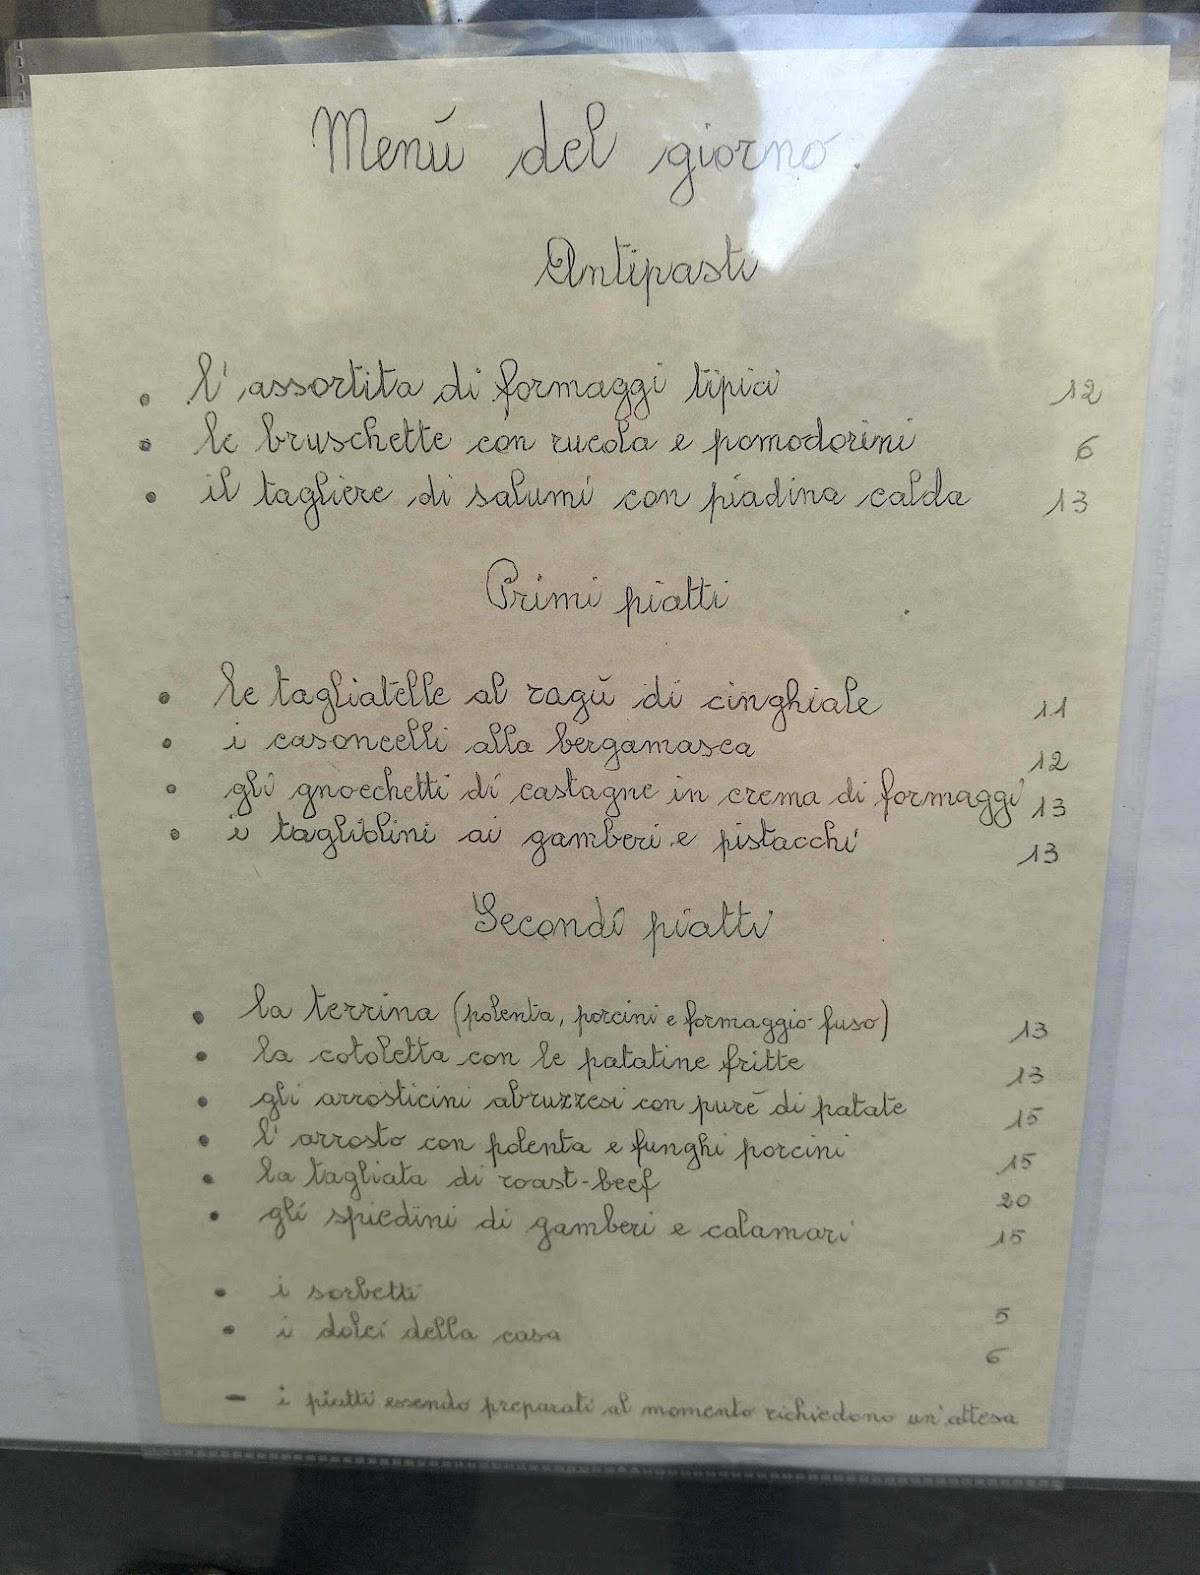 Menú del giorno.
Antipasti
• l'assortita di formaggi tipici 12
• le bruschette con rucola e pomodorini 6
• il tagliere di salumi con piadina calda 13
Primi piatti
• le tagliatelle al ragù di cinghiale 11
• i casoncelli alla bergamasca 12
• gli gnocchetti di castagne in crema di formaggi 13
• i tagliolini ai gamberi e pistacchi 13
Secondi piatti
• la terrina (polenta, porcini e formaggio fuso) 13
• la cotoletta con le patatine fritte 13
• gli arrosticini abruzzesi con puré di patate 15
• l'arrosto con polenta e funghi porcini 15
• la tagliata di roast-beef 20
• gli spiedini di gamberi e calamari 15
• i sorbetti 5
• i dolci della casa 6
- i piatti essendo preparati al momento richiedono un'attesa